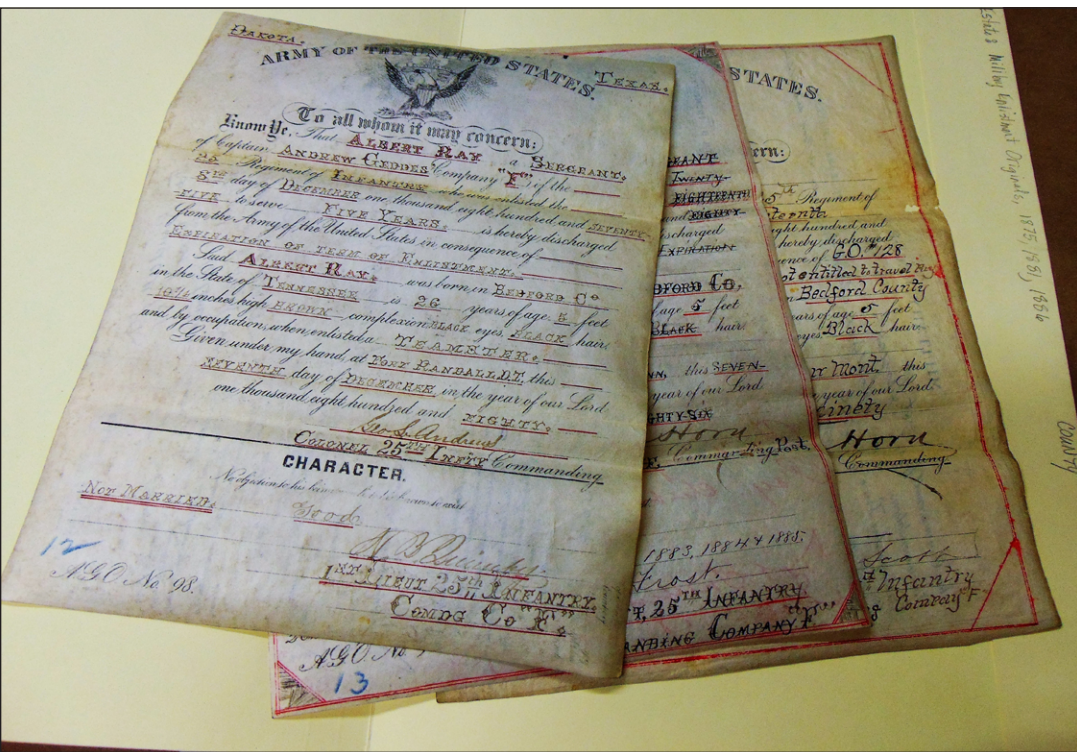 DAKOTA.
TEXAS.
ARMY OF THE UNITED STATES.
To all whom it may concern:
Know Ye, That ALBERT RAY a SERGEANT.
of Captain ANDREW GEDDES' Company "F", of the
25th Regiment of INFANTRY who was enlisted the
8TH day of DECEMBER one thousand eight hundred and SEVENTY-
FIVE to serve FIVE YEARS. is hereby discharged
from the Army of the United States in consequence of
EXPIRATION OF TERM OF ENLISTMENT.
Said ALBERT RAY. was born in BEDFORD CO
in the State of TENNESSEE is 26 years of age 5 feet
inches high BROWN complexion BLACK eyes, BLACK hair
and by occupation, when enlisted a TEAMSTER.
Given under my hand at FORT RANDALL D.T. this
SEVENTH day of DECEMBER in the year of our Lord
one thousand eight hundred and EIGHTY.
Geo L Andrews
COLONEL 25TH INFTY Commanding
CHARACTER.
No objection to his
Good
NOT MARRIED.
1ST LIEUT 25th INFANTRY.
COMDG CO "F".
12
A.G.O. No. 98.
EANT
TWENTY-
EIGHTEENTH
and EIGHTY-
ischarged
EXPIRATION
DFORD CO,
f age 5 feet
BLACK hair
NN, this SEVEN-
year of our Lord
GHTY-SIX
Horn
Commanding Post.
1883, 1884 & 1885.
Frost.
T, 25TH INFANTRY.
ANDING COMPANY "F"
A.G.O. No
13
STATES.
ern:
5th Regiment of
ight hundred and
hereby discharged
ence of G.O. #128
ot entitled to travel Pay
Bedford County
ars of age 5 feet
eyes, Black hair
Mont. this
year of our Lord
cinety
Horn
Commanding.
Scott
Infantry
Company F
Military Enlistment Originals, 1875, 1881, 1886
County